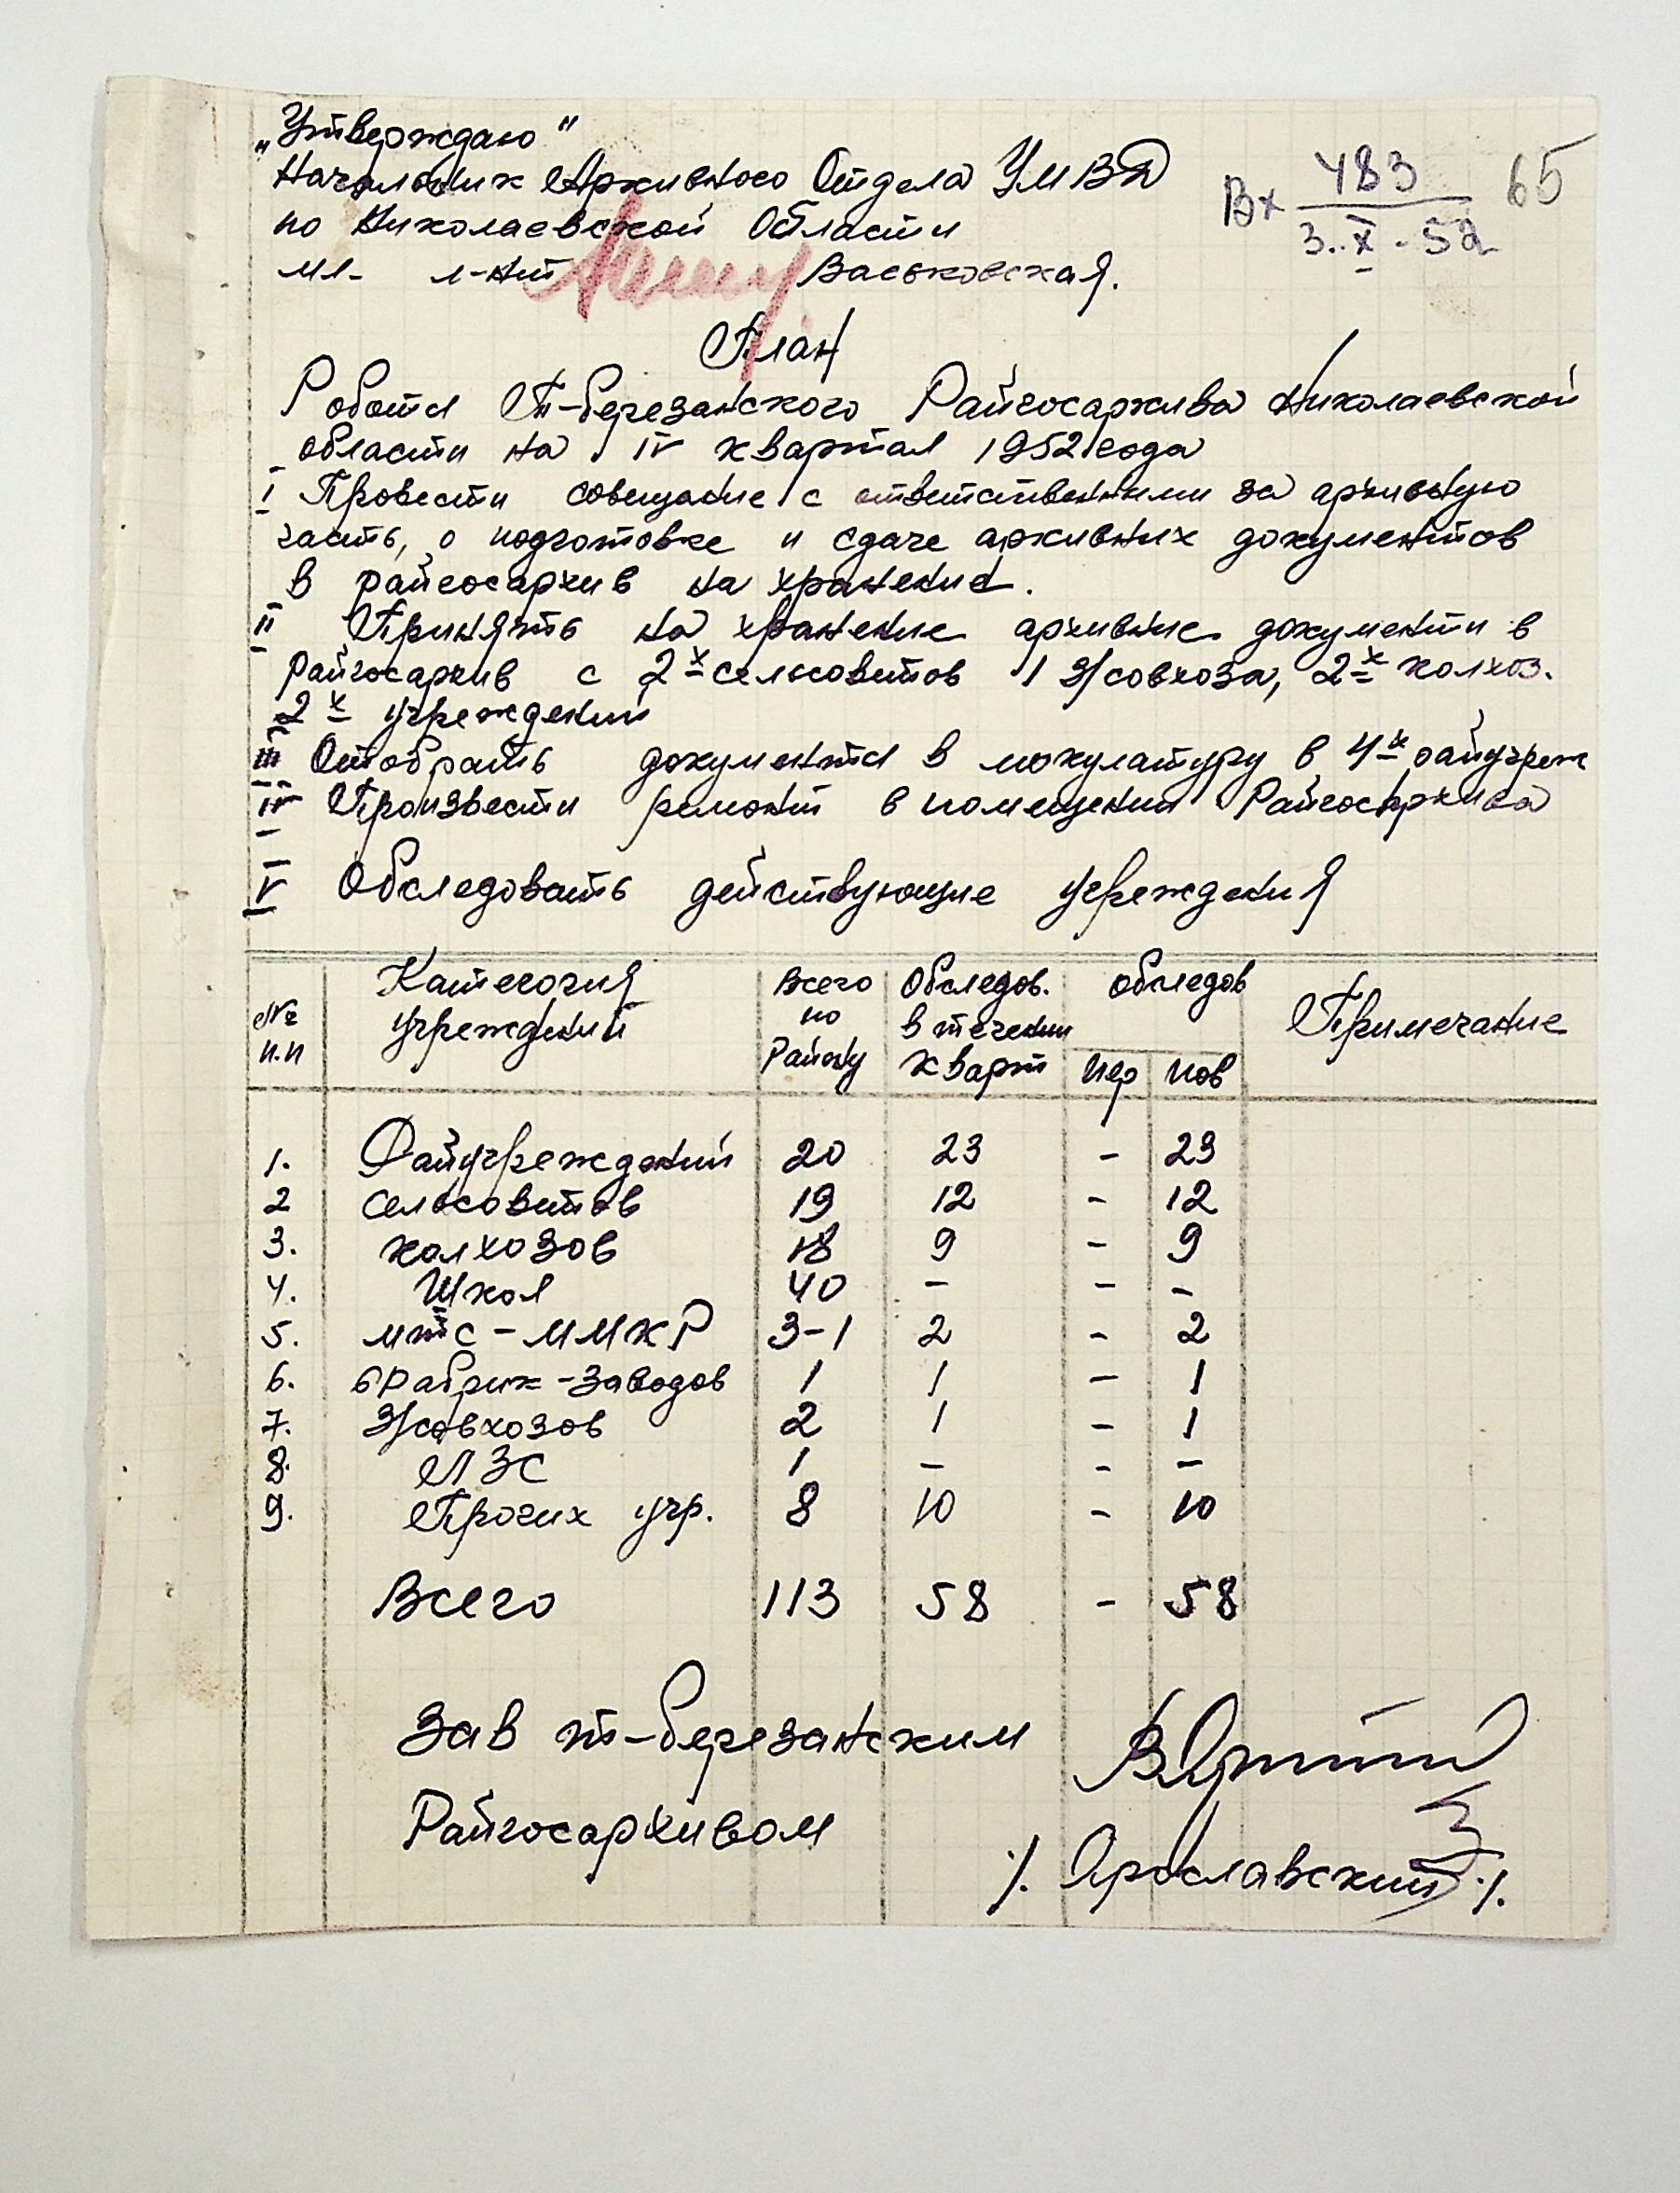 „Утверждаю"
Начальник Архивного Отдела УМВД
по Николаевской Области
мл- л-нт Васьковская.
Вх 483 65
3.X-52
План
Роботы Т-березанского Райгосархива Николаевской
области на IV квартал 1952 года
I Провести совещание с ответственными за архивную
часть, о подготовке и сдаче архивних документов
в райгосархив на хранение.
II Принять на хранение архивние документи в
Райгосархив с 2х сельсоветов 1 З/совхоза, 2х колхоз.
2х учреждений
III Отобрать документы в мокулатуру в 4х райучреж
IV Произвести ремонт в помещении Райгосархива
V Обследовать действующие учреждения
№ п.п Категория учреждений Всего по Району Обследов. в течении кварт обследов Примечание
пер пов
1. Райучреждений 20 23 - 23
2 сельсоветов 19 12 - 12
3. колхозов 18 9 - 9
4. Школ 40 - - -
5. мтс-ММКР 3-1 2 - 2
6. фабрик-заводов 1 1 - 1
7. З/совхозов 2 1 - 1
8. ЛЗС 1 - - -
9. Прочих учр. 8 10 - 10
Всего 113 58 - 58
Зав т-березанским
Райгосархивом
/. Ярославский ./.